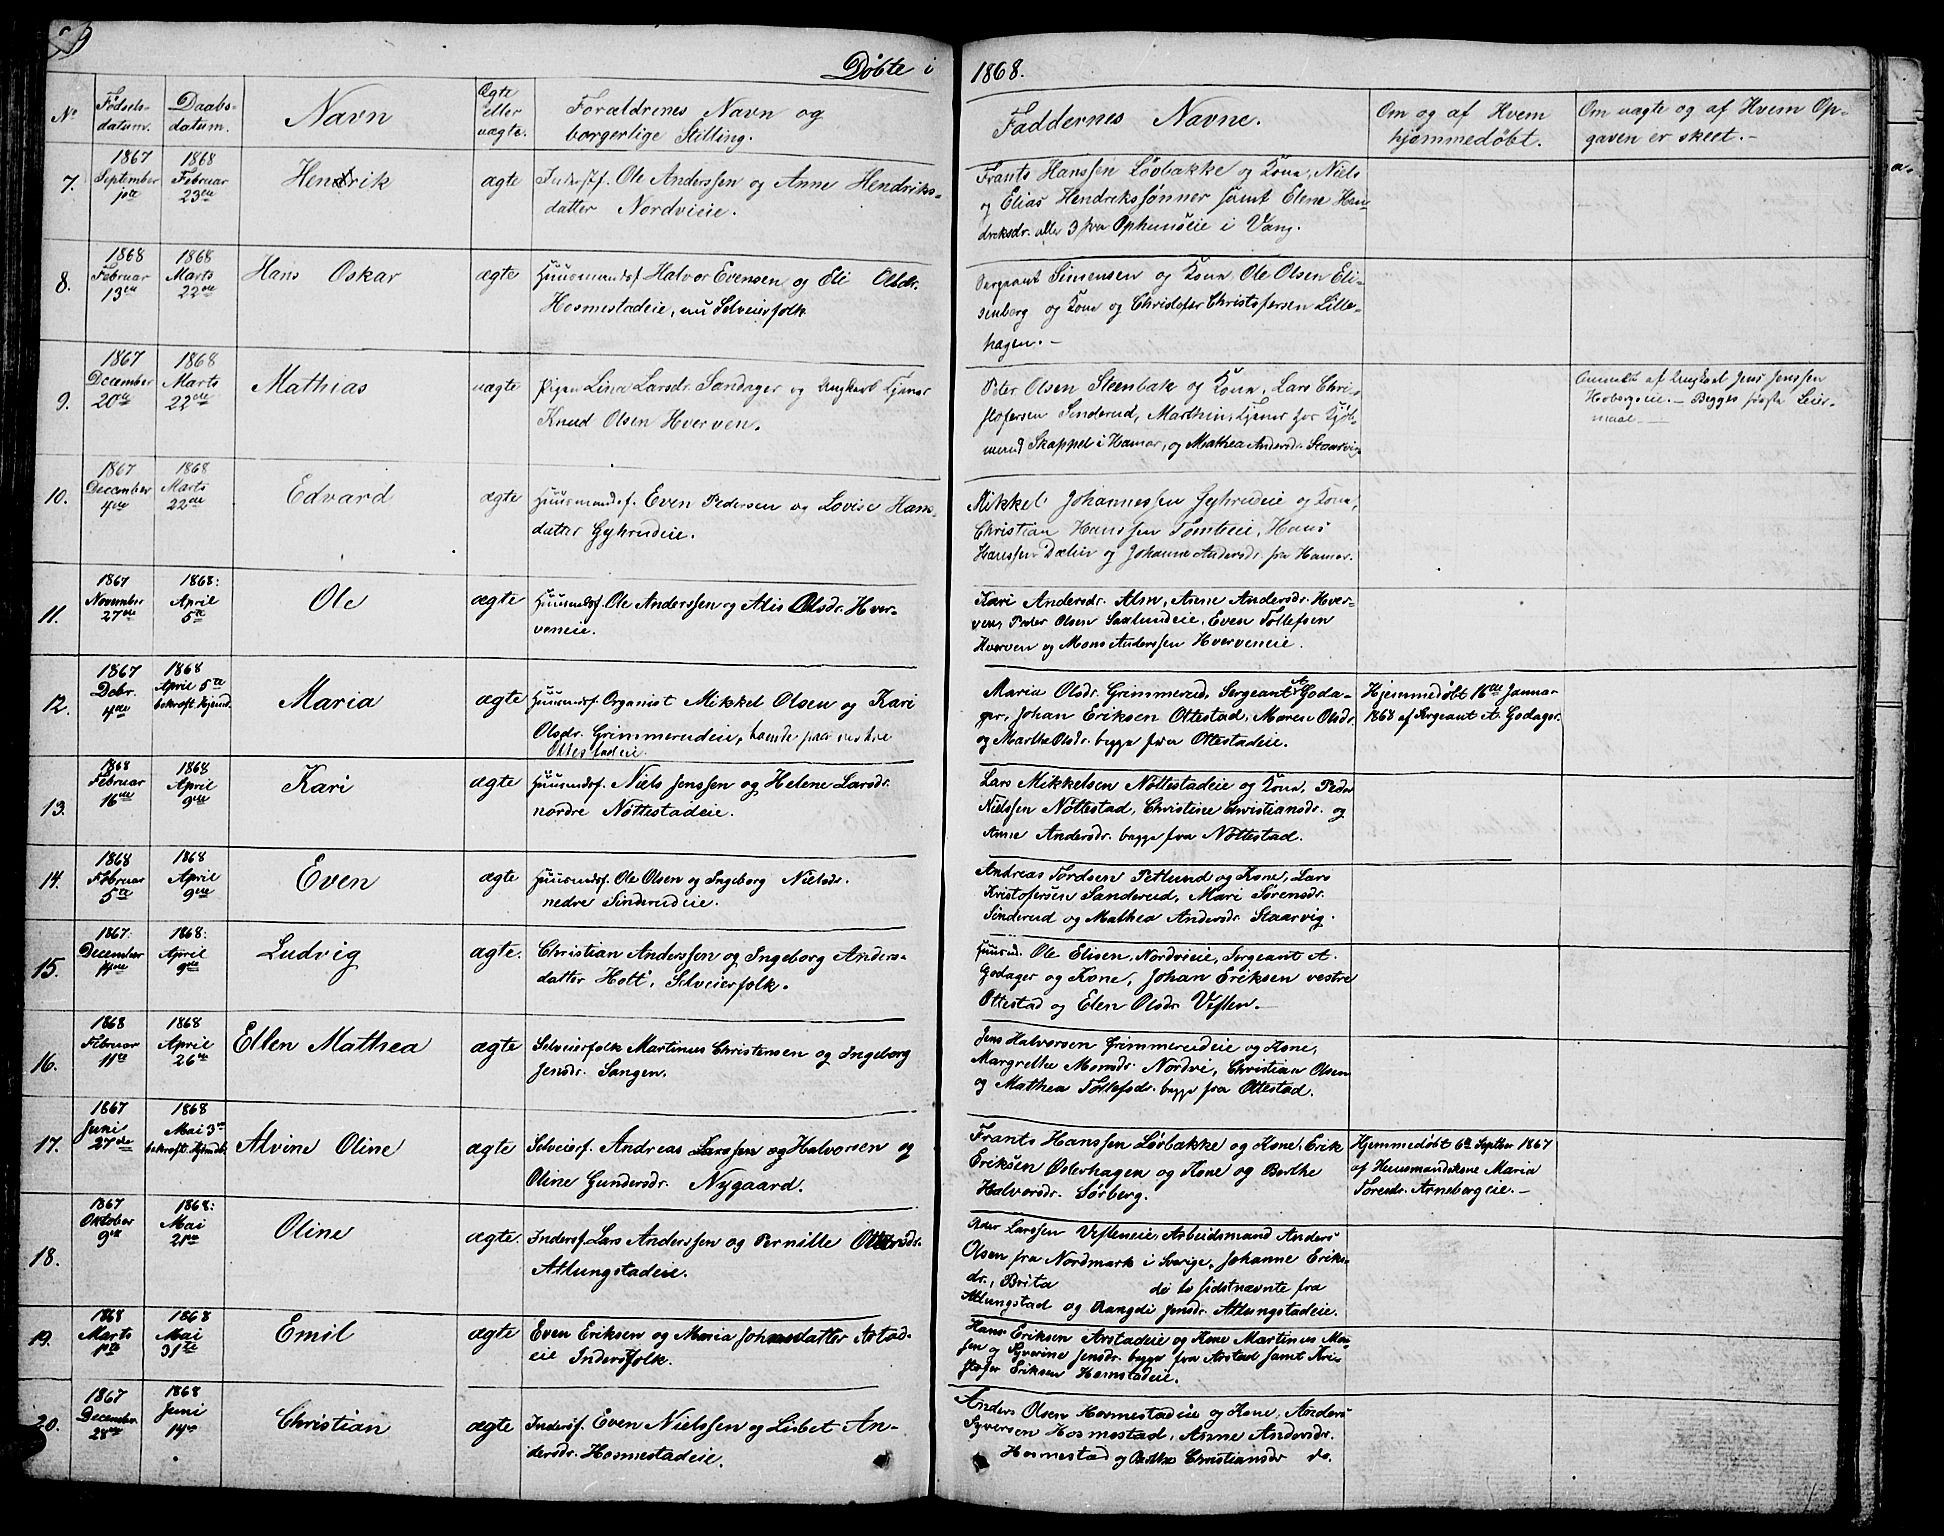 Døbte i 1868.
No
Fødsels-
datum.
Daabs-
datum.
Navn
Ægte
eller
uægte.
Forældrenes Navn og
borgerlige Stilling.
Faddernes Navne.
Om og af Hvem
hjemmedøbt.
Om uægte og af Hvem Op-
gaven er skeet.-
7.
1867
September
1ste
1868
Februar
23de
Hendrik
ægte
Inderstf. Ole Anderssen og Anne Hendriks-
datter Nordvieie.
Frants Hanssen Løvbække og Kone, Niels
og Elias Hendrikssønner samt Elene Hen-
driksdr. alle 3 fra Ophuuseie i Vang.
8.
1868
Februar
13de
1868
Marts
22de
Hans Oskar
ægte
Huusmandsf. Halvor Evensen og Eli Olsdr.
Hosmestadeie, nu Selveierfolk
Sergeant Simensen og Kone, Ole Olsen Eli-
senberg og Kone og Christofer Christofersen Lille-
hagen.-
9.
1867
December
20de
1868
Marts
22de
Mathias
uægte
Pigen Lina Larsdr. Sandager og Ungkarl Tjener
Knud Olsen Hverven.
Peter Olsen Steenbæk og Kone, Lars Chri-
stofersen Sinderud, Marthin, Tjener hos Kjøb-
mand Skappel i Hamar, og Mathea Andersdr. Staarvig
Anmeldt af Ungkarl Jens Jenssen
Hobergseie.- Begges første Leier-
maal.-
10.
1867
December
4de
1868
Marts
22de
Edvard
ægte
Huusmandsf. Even Pedersen og Lovise Hans-
datter Gyhrudeie.
Mikkel Johannessen Gyhrudeie og Kone,
Christian Hanssen Tomteie, Hans
Hanssen Dælin og Johanne Andersdr. fra Hamar.
11.
1867
November
27de
1868:
April
5te
Ole
ægte
Huusmdsf. Ole Anderssen og Alis Olsdr. Hver-
veneie.
Kari Andersdr. Alm, Anne Andersdr. Hver-
ven, Peder Olsen Saxlundeie, Even Tollefsen
Hverven og Mons Anderssen Hverveneie.
12.
1867
Debr.
4de
1868
April 5te
bekræft. Hjemd.
Maria
ægte
Huusmdsf. Organist Mikkel Olsen og Kari
Olsdr. Grimmerudeie, hende paa vestre
Ottestadeie.
Maria Olsdr. Grimmerud, Sergeant A. Goda-
ger, Johan Eriksen Ottestad, Maren Olsdr.
og Marthe Olsdr. begge fra Ottestadeie.
Hjemmedøbt 16de Januar
1868 af Sergeant A. Godager.
13.
1868
Februar
16de
1868
April
9de
Kari
ægte
Huusmdsf. Niels Jenssen og Helene Larsdr.
nordre Nøttestadeie.
Lars Mikkelsen Nøttestadeie og Kone, Peder
Nielssen Nøttestad, Christine Christiansdr. og
Anne Andersdr. begge fra Nøttestad.
14.
1868
Februar
5te
1868
April
9de
Even
ægte
Huusmdsf. Ole Olsen og Ingeborg Nielsdr.
nedre Sinderudeie.
Andreas Tordsen Petlund og Kone, Lars
Kristofersen Sanderud, Mari Sørensdr.
Sinderud og Mathea Andersdr. Staarvig.
15.
1867.
December
14de
1868.
April
9de
Ludvig
ægte.
Christian Anderssen og Ingeborg Anders-
datter Hott, Selveierfolk.
Huusmd. Ole Elisen, Nordvieie, Sergeant A.
Godager og Kone, Johan Eriksen vestre
Ottestad og Elen Olsdr. Veflen.-
16.
1868
Februar
11te
1868
April
26de
Ellen Mathea
ægte
Selveierfolk Martinus Christensen og Ingeborg
Jensdr. Sangen.
Jens Halvorsen Grimmerudeie og Kone,
Margrethe Monsdr. Nordvi, Christian Olsen
og Mathea Tollefsdr. begge fra Ottestad.
17.
1867
Juni
27de
1868
Mai 3de
bekræft. Hjemdb.
Alvine Oline
ægte
Selveierf. Andreas Larssen og Halvorsen og
Oline Gundersdr. Nygaard.
Frants Hanssen Løvbække og Kone, Erik
Eriksen Osterhagen og Kone og Berthe
Halvorsdr. Sørberg.
Hjemmedøbt 6te Septber 1867
af Huusmandskone Maria
Toresdr. Arnebergeie.-
18.
1867
Oktober
9de
1868:
Mai
21de
Oline
ægte.
Indersf. Lars Anderssen og Pernille Ottersdr.
Atlungstadeie.
Peder Larssen Vefleneie, Arbeidsmand Anders
Olsen fra Nordmark i Sverige, Johanne Eriks-
dr., Brita de to sidstnævnte fra
Atlungstad og Rangdi Jensdr. Atlungstadeie.
19.
1868
Marts
1ste
1868
Mai
31te
Emil
ægte
Even Eriksen og Maria Johnsdatter Arstad-
eie Inderstfolk.
Hans Eriksen Arstadeie og Kone Martinus Mon-
sen og Syverine Jensdr. begge fra Arstad samt Kri-
stofer Eriksen Hemstadeie.
20.
1867
December
28de
1868
Juni
14de
Christian
ægte
Inderstf. Even Nielssen og Lisbet An-
dersdr. Hosmestadeie.
Anders Olsen Hosmestadeie og Kone, Anders
Syversen Hosmestad, Anne Andersdr.
Hosmestad og Berthe Christiansdr do.